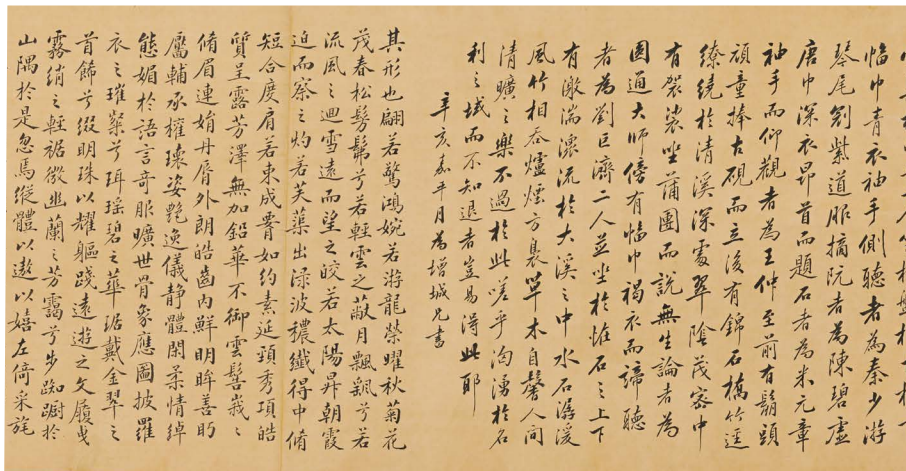 幅巾青衣袖手側聽者為秦少游
琴尾剑紫道服摘阮者為陳碧虛
唐巾深衣昂首而題石者為米元章
袖手而仰觀者為王仲至前有鬅頭
頑童捧古硯而立後有錦石橋竹逕
繚繞於清溪深處翠陰茂密中
有袈裟坐蒲團而說無生論者為
圓通大師傍有幅巾褐衣而諦聽
者為劉巨濟二人並坐於怪石之上下
有激湍潀流於大溪之中水石潺湲
風竹相吞爐煙方裊草木自馨人間
清曠之樂不過於此嗟乎洶湧於名
利之域而不知退者豈易得此耶
辛亥嘉平月為增城兄書
其形也翩若驚鴻婉若游龍榮曜秋菊花
茂春松髣髴兮若輕雲之蔽月飄颻兮若
流風之迴雪遠而望之皎若太陽昇朝霞
迫而察之灼若芙蕖出淥波穠纖得中脩
短合度肩若束成腰如約素延頸秀項皓
質呈露芳澤無加鉛華不御雲髻峩〻
脩眉連娟丹脣外朗皓齒內鮮明眸善眄
靨輔承權瓌姿艷逸儀静體閑柔情綽
態媚於語言奇服曠世骨象應圖披羅
衣之璀粲兮珥瑤碧之華琚戴金翠之
首飾兮綴明珠以耀軀踐遠遊之文履曳
霧綃之輕裾微幽蘭之芳靄兮步踟躕於
山隅於是忽焉縱體以遨以嬉左倚采旄